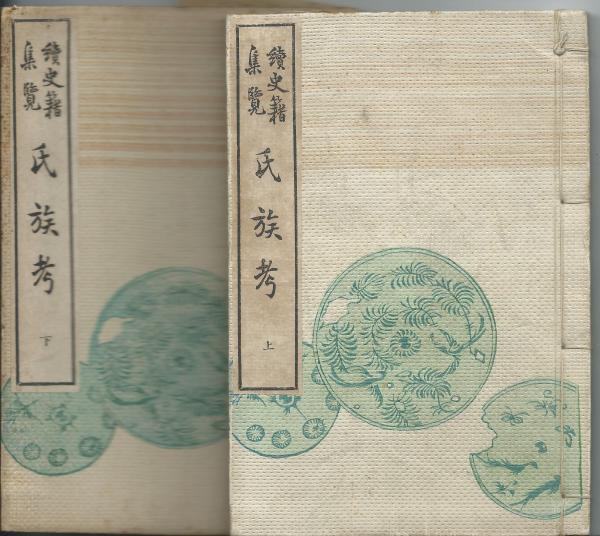 續史籍
集覽
氏族考
上
續史籍
集覽
氏族考
下